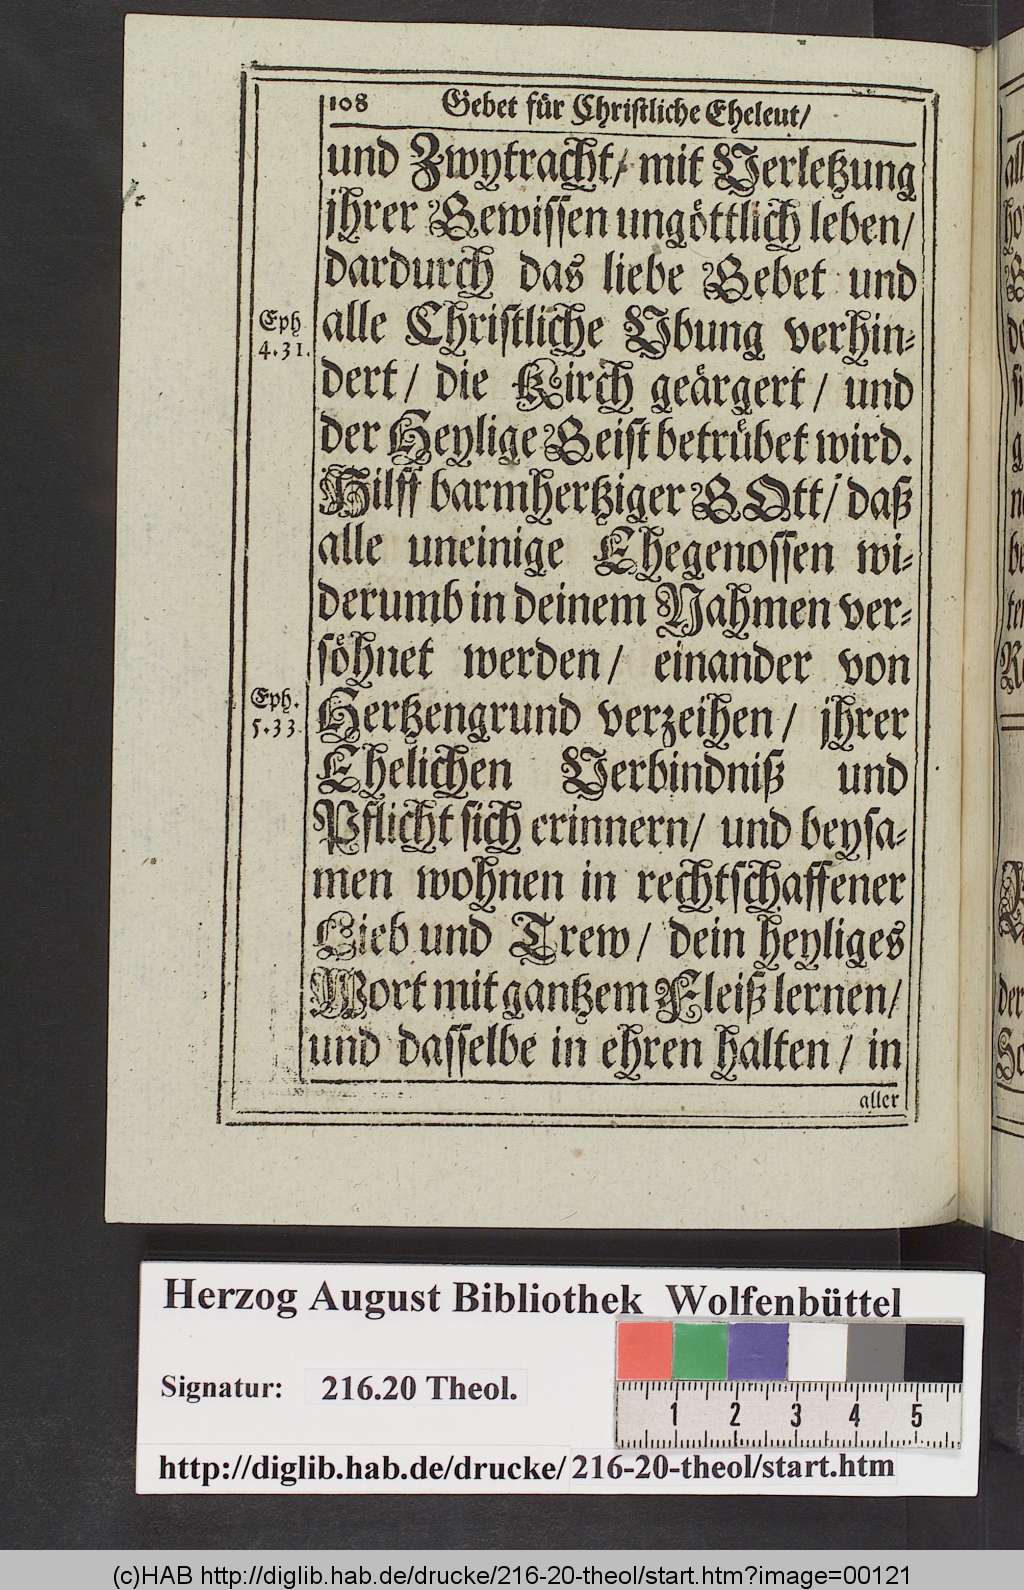 108 Gebet für Christliche Eheleut/
und Zwytracht/ mit Verletzung
jhrer Gewissen ungöttlich leben/
dardurch das liebe Gebet und
Eph
4.31.
alle Christliche Vbung verhin-
dert/ die Kirch geärgert/ und
der Heylige Geist betrübet wird.
Hilff barmhertziger GOtt/ daß
alle uneinige Ehegenossen wi-
derumb in deinem Nahmen ver-
söhnet werden/ einander von
Eph.
5.33
Hertzengrund verzeihen/ jhrer
Ehelichen Verbindniß und
Pflicht sich erinnern/ und beysa-
men wohnen in rechtschaffener
Lieb und Trew/ dein heyliges
Wort mit gantzem Fleiß lernen/
und dasselbe in ehren halten/ in
aller
Herzog August Bibliothek Wolfenbüttel
Signatur: 216.20 Theol.
1 2 3 4 5
http://diglib.hab.de/drucke/216-20-theol/start.htm
(c)HAB http://diglib.hab.de/drucke/216-20-theol/start.htm?image=00121